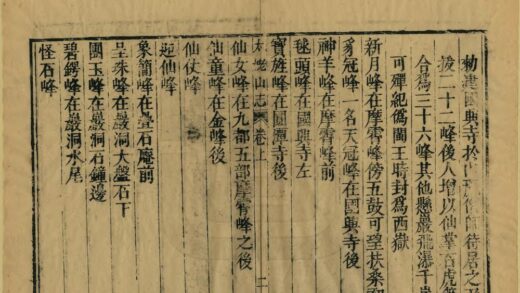 勅建國興寺於
二十二峰後人增以仙掌石虎
合為三十六峰其他懸巖飛瀑千
可殫紀偽閩王時封為西嶽
新月峰在摩霄峰傍五鼓可望扶桑
豸冠峰一名天冠峰在國興寺後
神羊峰在摩霄峰前
毬頭峰在國興寺左
寶旌峰在圓潭寺後
太姥山志 卷上 二
仙女峰在九都五部摩霄峰之後
仙童峰在金峰後
仙仗峰
迎仙峰
象簡峰在疊石庵前
呈珠峰在巖洞大盤石下
圓玉峰在巖洞石鐘邊
碧鍔峰在巖洞水尾
怪石峰